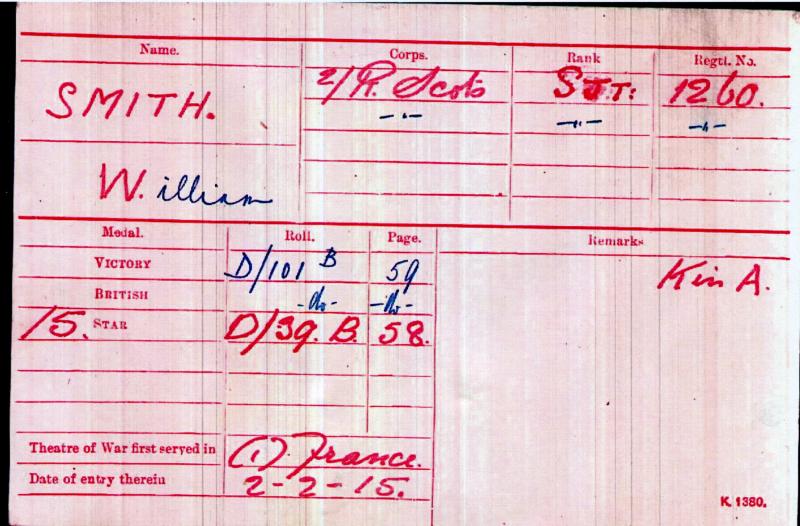 Name. Corps. Rank Regtl. No.
SMITH. 2/R. Scots SJT: 1260.
—"— —"— —"—
William
Medal. Roll. Page. Remarks
VICTORY D/101 B 59 Kin A.
BRITISH -do- -do-
15. STAR D/39. B. 58.
Theatre of War first served in (1) France.
Date of entry therein 2-2-15.
K. 1380.